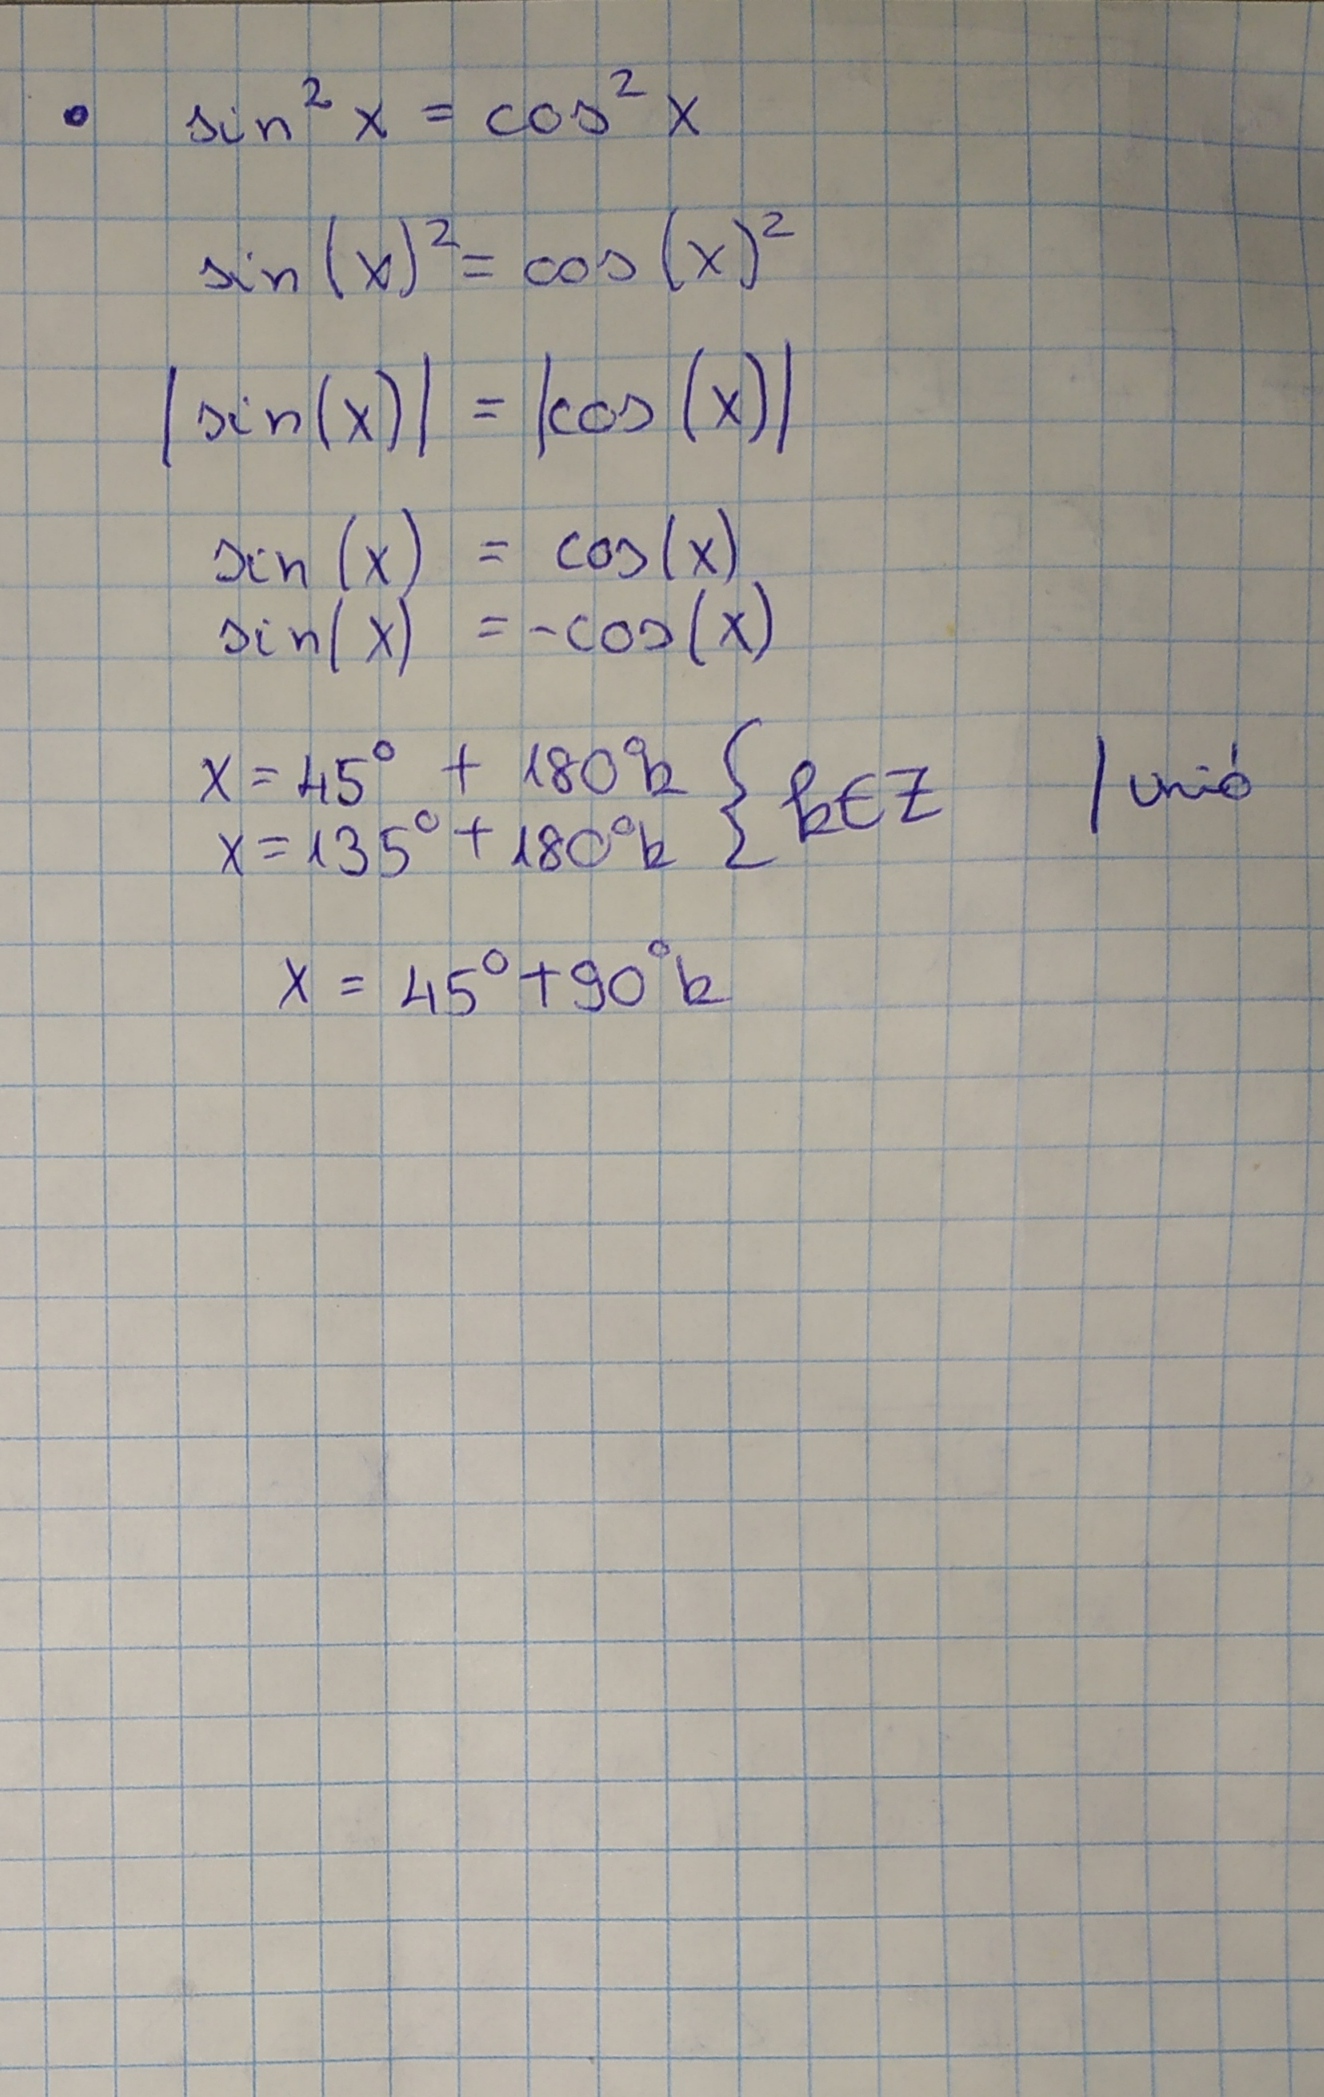 • sin² x = cos² x
sin(x)² = cos(x)²
|sin(x)| = |cos(x)|
sin(x) = cos(x)
sin(x) = -cos(x)
x = 45° + 180°k { k∈Z / unió
x = 135° + 180°k
x = 45° + 90°k